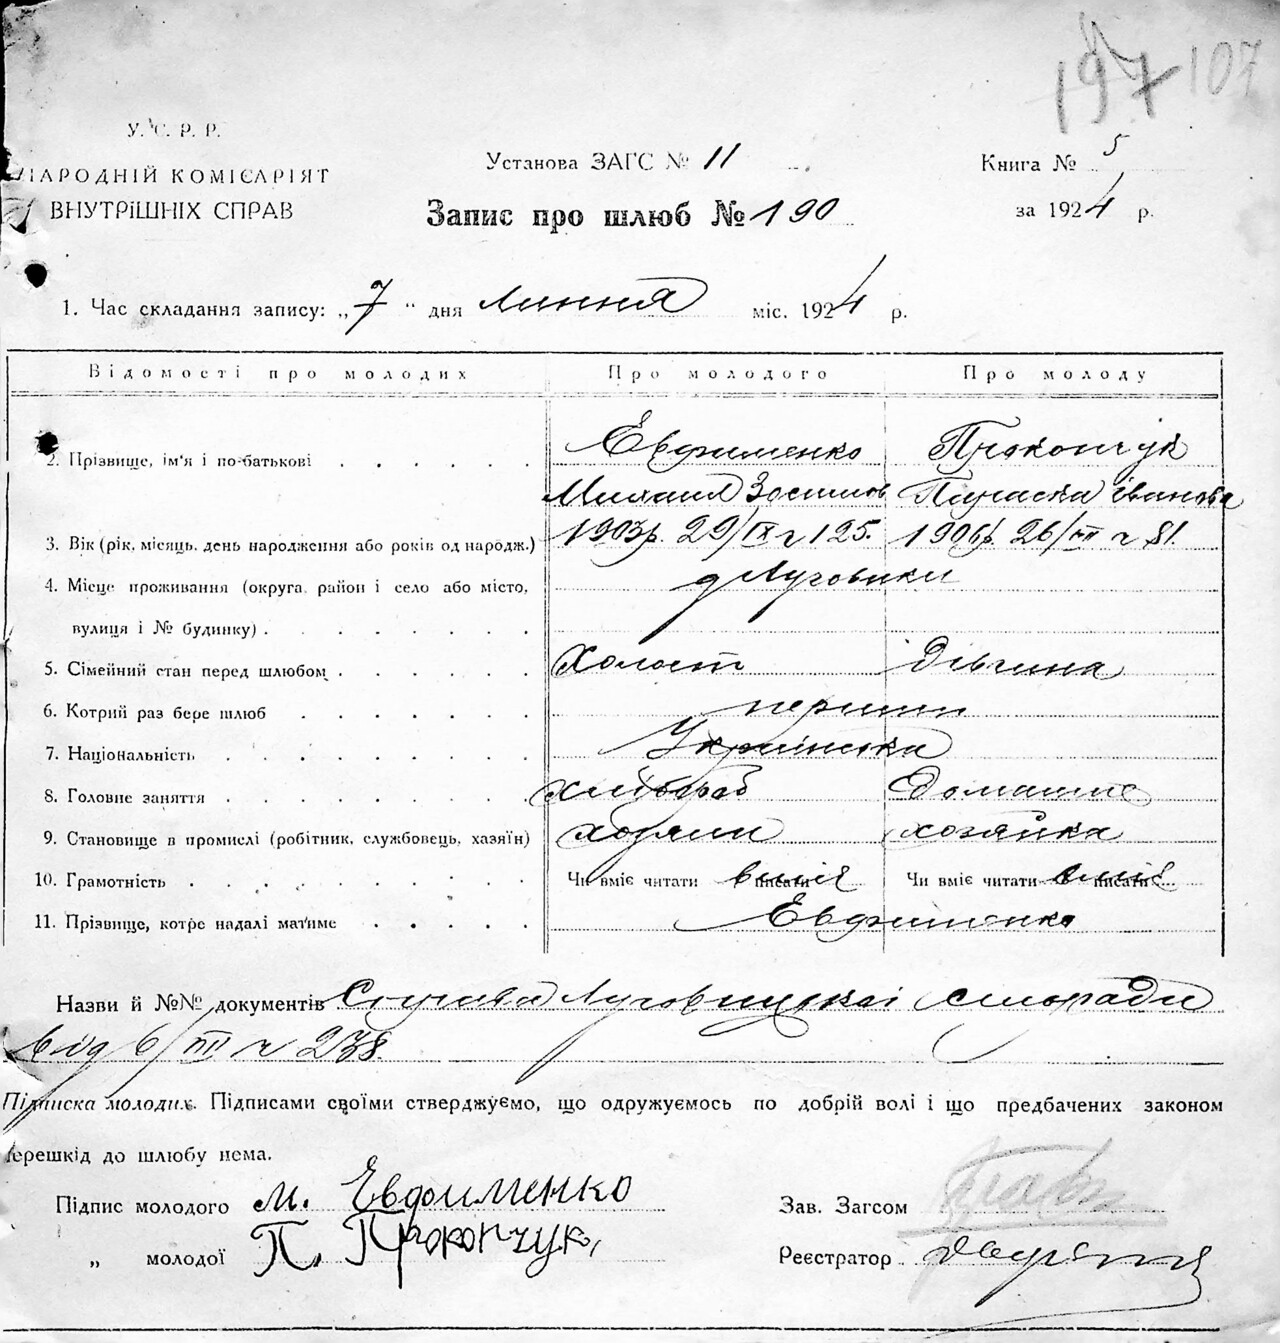 197 107
У. С. Р. Р.
НАРОДНІЙ КОМІСАРІЯТ
ВНУТРІШНІХ СПРАВ
Установа ЗАГС № 11
Запис про шлюб № 190
Книга № 5
за 1924 р.
1. Час складання запису: „7“ дня липня міс. 1924 р.
Відомості про молодих Про молодого Про молоду
2. Прізвище, ім'я і по-батькові Евфименко Прокопчук
Михаил Зосимов Параска Іванова
3. Вік (рік, місяць, день народження або років од народж.) 1903р. 29/IX ч 125. 1906р. 26/VII ч 81.
4. Місце проживання (округа, район і село або місто, Луговики
вулиця і № будинку)
5. Сімейний стан перед шлюбом Холост Дівчина
6. Котрий раз бере шлюб перший
7. Національність Українська
8. Головне заняття Хлібороб Домашнє
9. Становище в промислі (робітник, службовець, хазяїн) хозяин хозяйка
10. Грамотність Чи вміє читати писати вміє Чи вміє читати писати вміє
11. Прізвище, котре надалі матиме Евфименко
Назви й №№ документів Луговицкої сільради
від 6/VII ч 238.
Підписка молодих. Підписами своїми стверджуємо, що одружуємось по добрій волі і що предбачених законом
перешкід до шлюбу нема.
Підпис молодого М. Евдоименко Зав. Загсом
„ молодої П. Прокопчук, Реєстратор